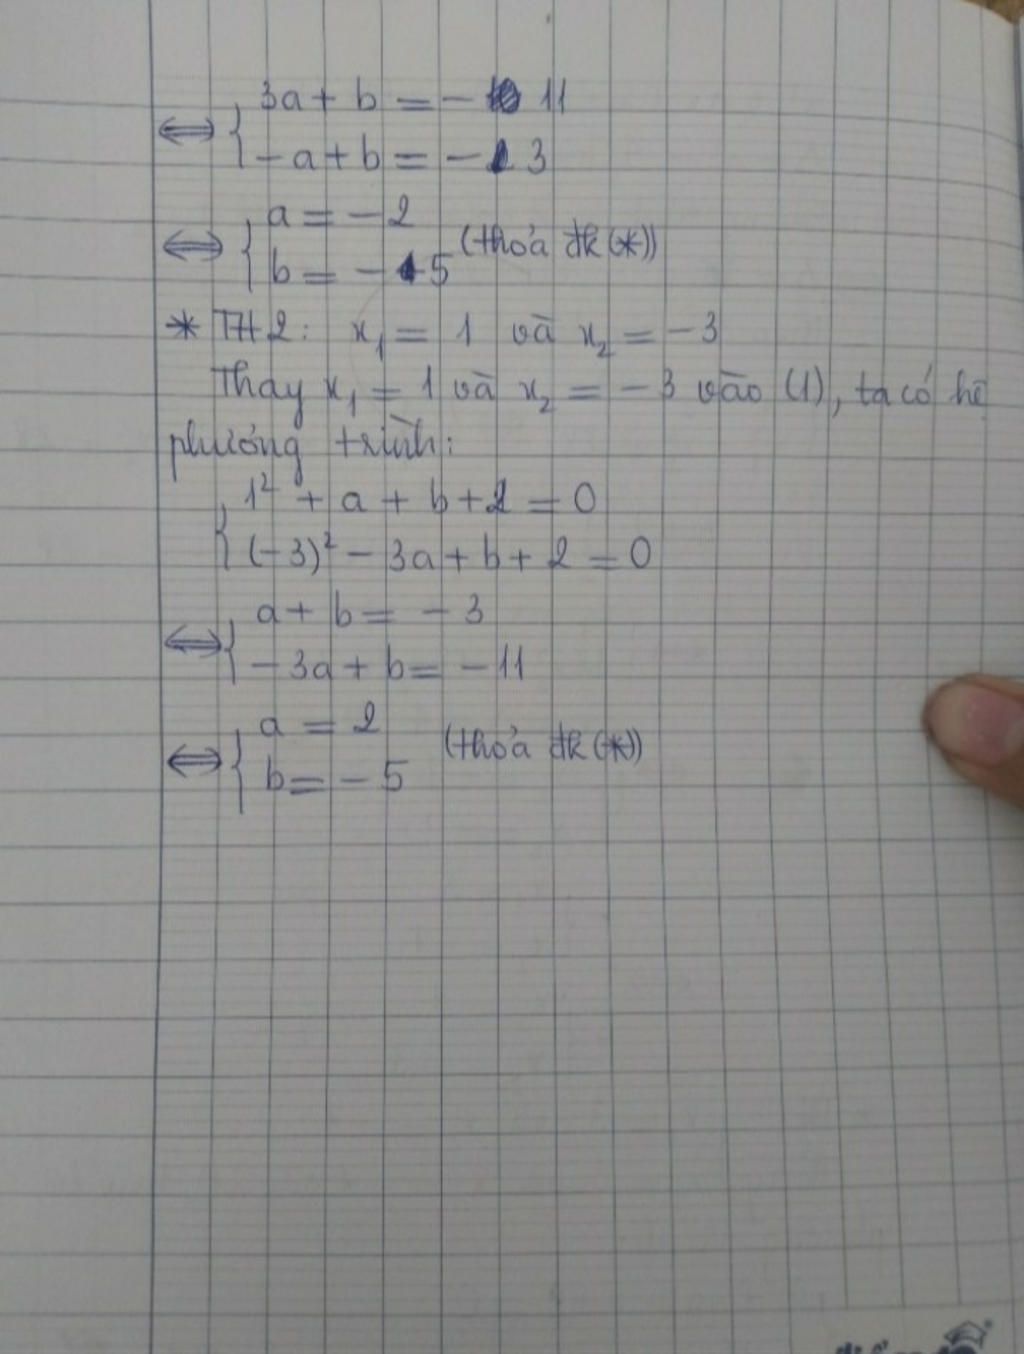 3a + b = - 11
⇔ {
-a + b = - 3
a = -2
⇔ { (thỏa đk (*))
b = - 5
* TH2: x₁ = 1 và x₂ = -3
Thay x₁ = 1 và x₂ = -3 vào (1), ta có hệ
phương trình:
{ 1² + a + b + 2 = 0
(-3)² - 3a + b + 2 = 0
a + b = -3
⇔ {
-3a + b = -11
a = 2
⇔ { (thỏa đk (*))
b = -5